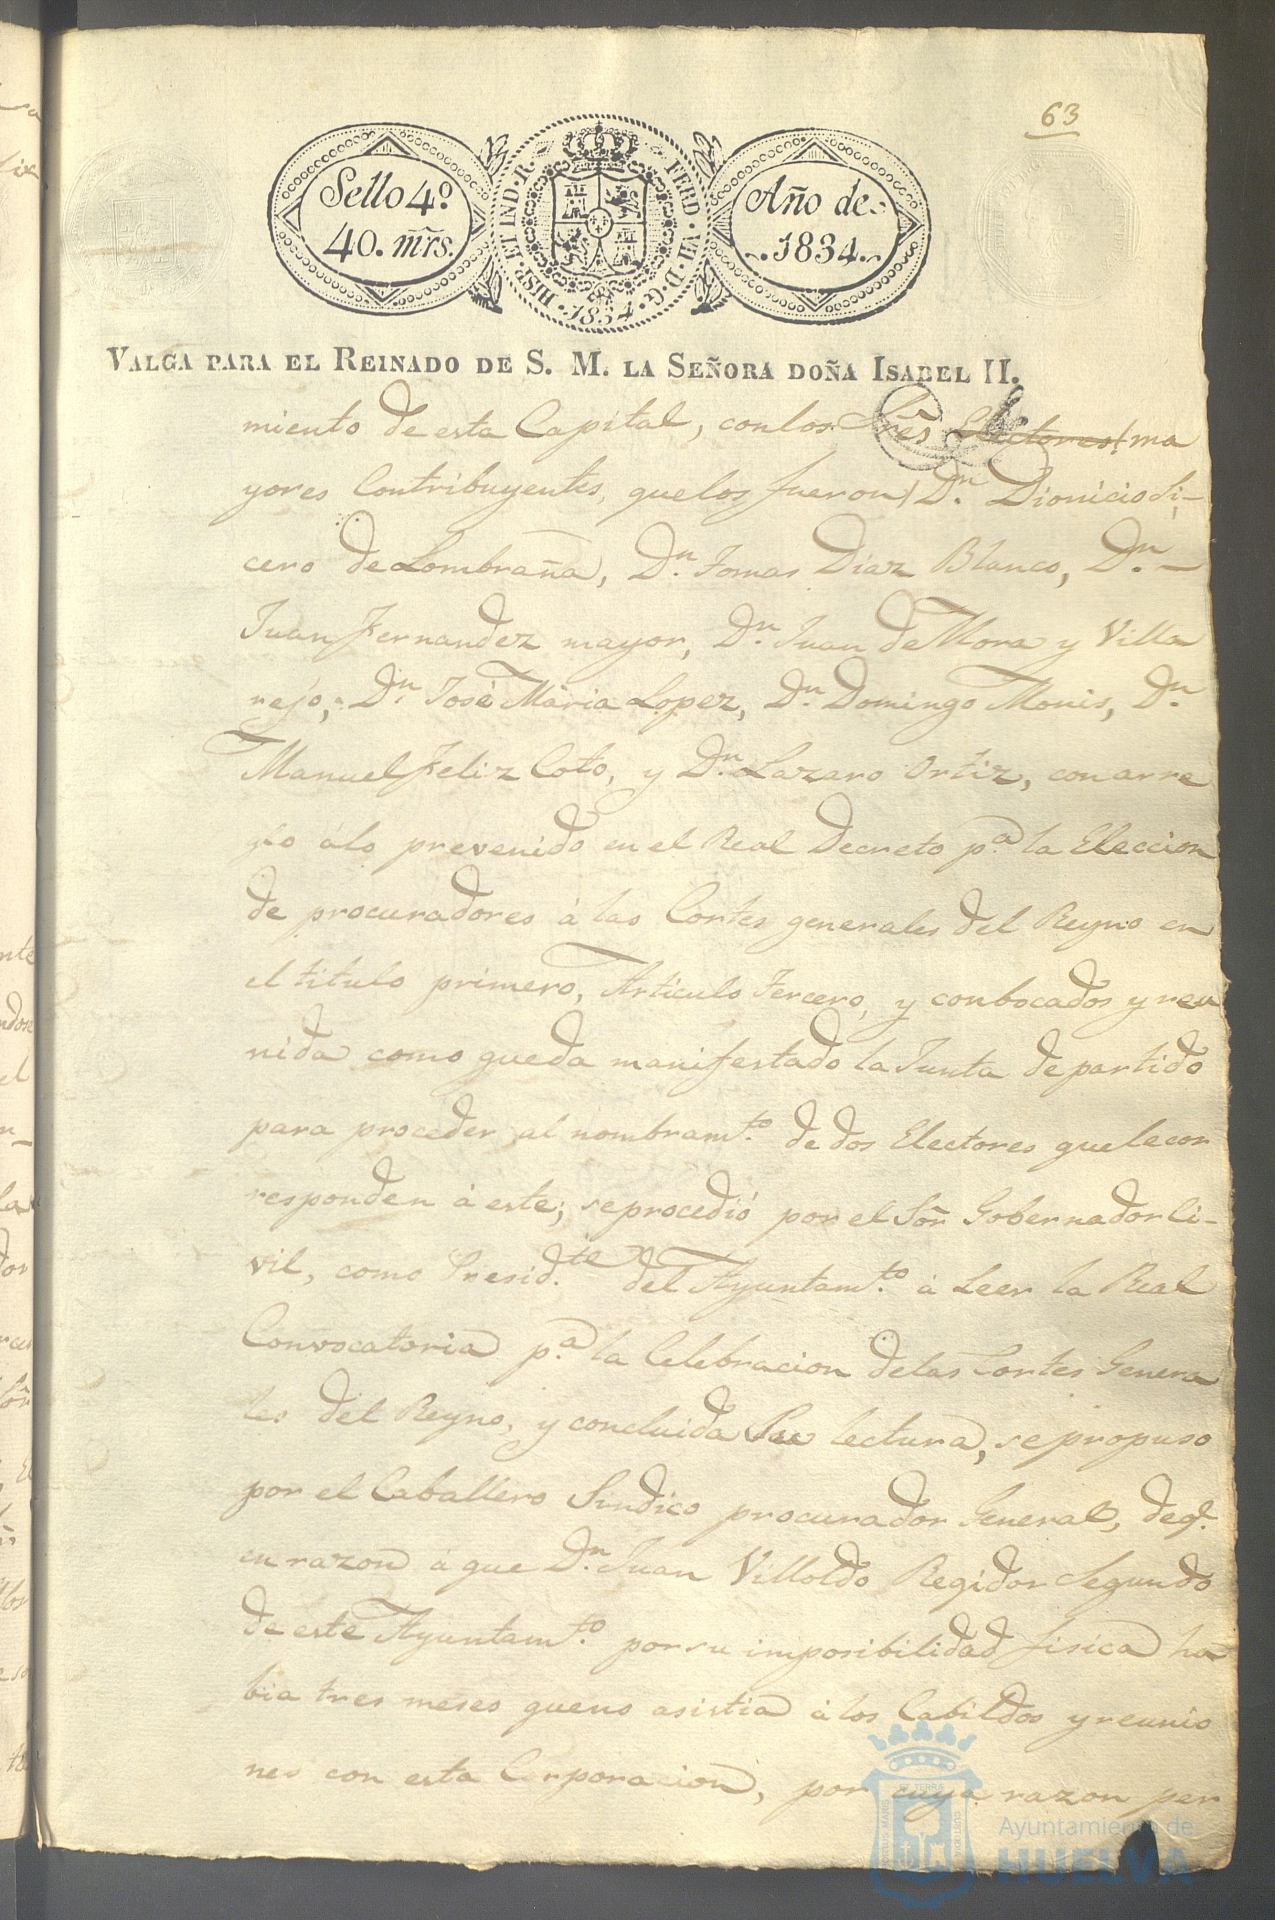 63
Sello 4.º
40. mrs.
HISP. ET IND. R. FERD. VII. D. G. 1834.
Año de
1834.
VALGA PARA EL REINADO DE S. M. LA SEÑORA DOÑA ISABEL II.
miento de esta Capital, con los Sres Electores / ma
yores Contribuyentes, que los fueron / Dn. Dionicio Si-
cero de Lombraña, Dn. Tomas Diaz Blanco, Dn.
Juan Fernandez mayor, Dn. Juan de Mora y Villa
nejo, Dn. José Maria Lopez, Dn. Domingo Monis, Dn.
Manuel Feliz Coto, y Dn. Lazaro Ortiz, con arre
glo álo prevenido en el Real Decreto pa. la Eleccion
de procuradores á las Cortes generales del Reyno en
el titulo primero, Articulo Tercero, y conbocados y reu
nida como queda manifestado la Junta de partido
para proceder al nombramto. de dos Electores que le cor
responden á este; se procedió por el Sor Gobernador Ci-
vil, como Presidte. del Ayuntamto. á Leer la Real
Convocatoria pa. la Celebracion de las Cortes Genera
les del Reyno, y concluida Su lectura, se propuso
por el Caballero Sindico procurador General, de q.
en razon á que Dn. Juan Villoldo Regidor Segundo
de este Ayuntamto. por su imposibilidad fisica ha
bia tres meses que no asistia á los Cabildos y reunio
nes con esta Corporacion, por cuya razon per
Ayuntamiento de
HUELVA